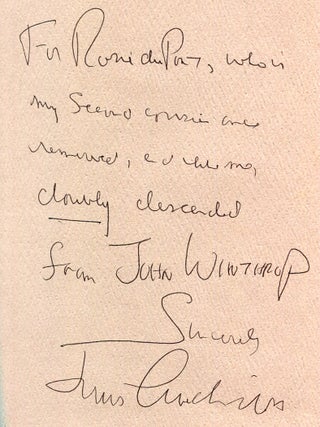 For Rosie duPont, who is
my second cousin once
removed, and like me,
doubly descended
from JOHN WINTHROP
Sincerely
Louis Auchincloss